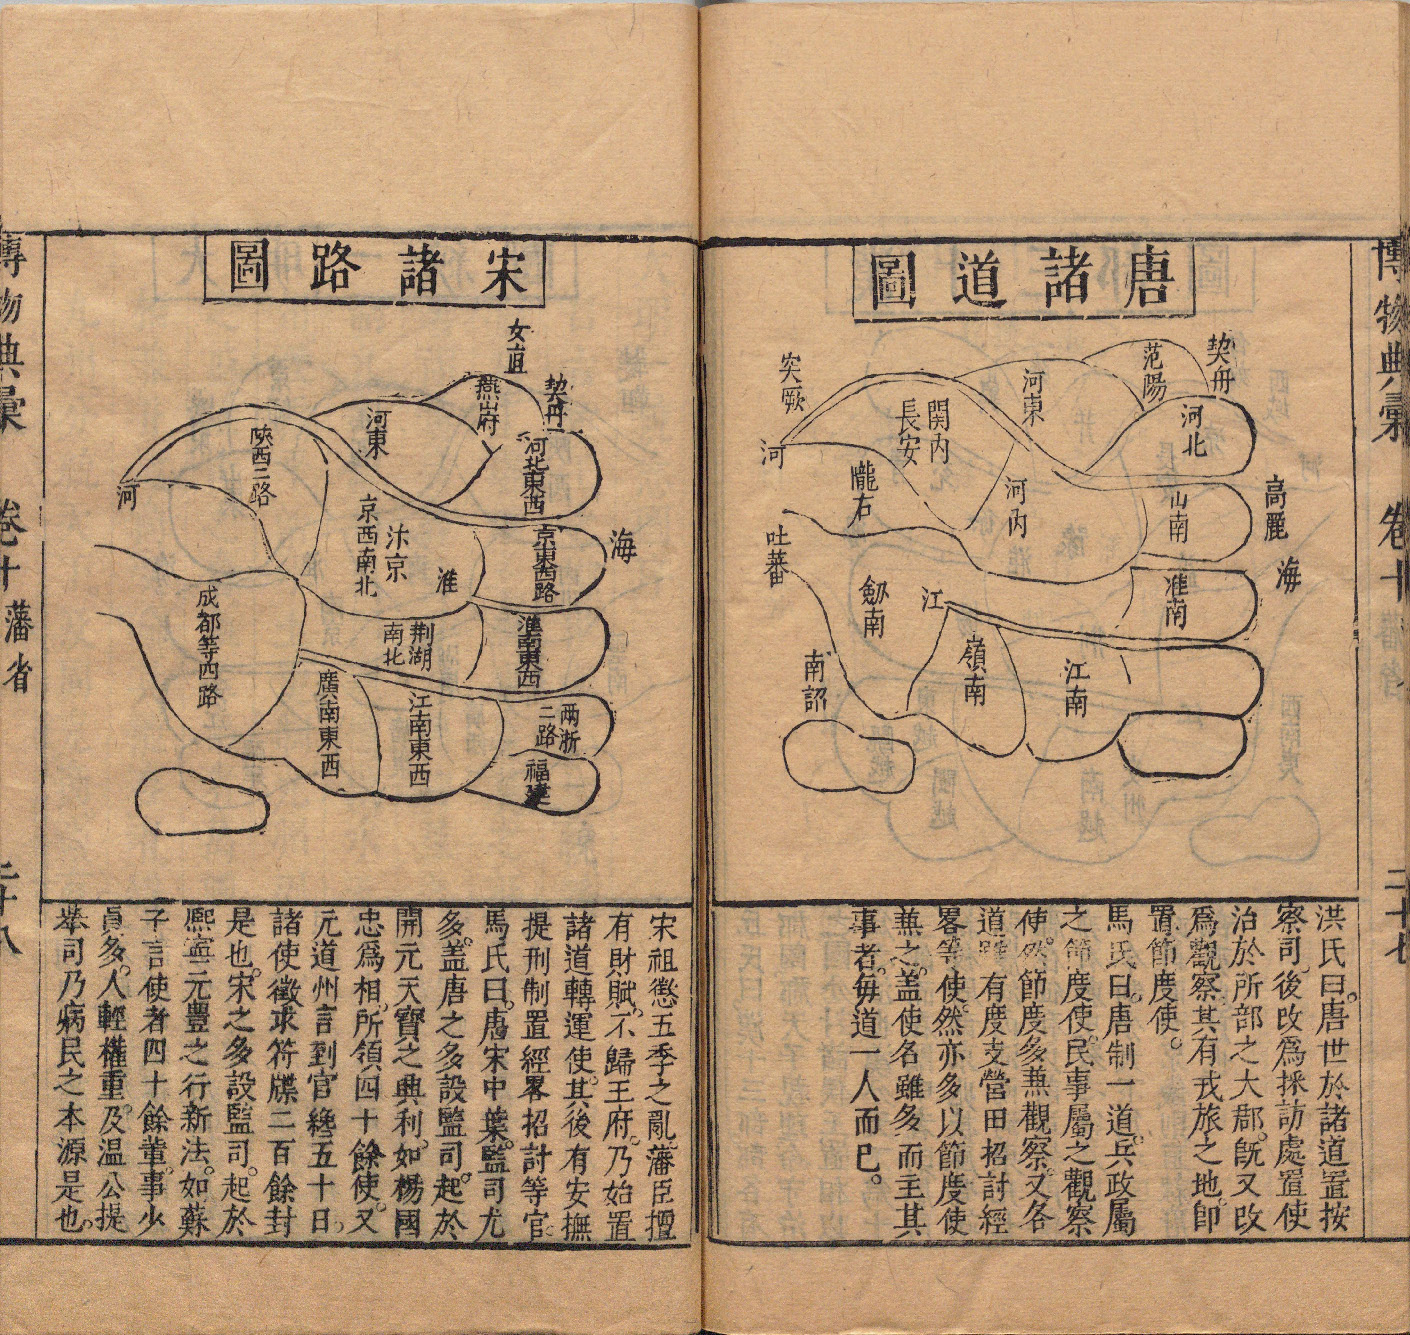 博物典彙
卷十
二十七
唐諸道圖
契丹
范陽
河東
突厥
河北
關内
長安
河
隴右
河内
山南
高麗
海
吐蕃
劒南
江
淮南
嶺南
江南
南詔
洪氏曰。唐世於諸道置按
察司。後改爲採訪處置使
治於所部之大郡。旣又改
爲觀察其有戎旅之地。卽
置節度使。
馬氏曰。唐制一道。兵政屬
之節度使。民事屬之觀察
使。然節度多兼觀察。又各
道雖有度支營田招討經
畧等使。然亦多以節度使
兼之。盖使名雖多而主其
事者。每道一人而已。
宋諸路圖
女直
契丹
燕山府
河東
河北東西
陝西二路
河
京西南北
汴京
淮
京東西路
海
成都等四路
荆湖
南北
淮南東西
廣南東西
江南東西
两浙
二路
福建
宋祖懲五季之亂。藩臣擅
有財賦。不歸王府。乃始置
諸道轉運使。其後有安撫
提刑制置經畧招討等官。
馬氏曰。唐宋中葉。監司尤
多。盖唐之多設監司。起於
開元天寶之興利。如楊國
忠爲相。所領四十餘使。又
元道州言到官纔五十日。
諸使徵求符牒二百餘封
是也。宋之多設監司。起於
熙寧元豐之行新法。如蘇
子言使者四十餘輩。事少
員多。人輕權重。及温公提
舉司乃病民之本源是也。
博物典彙
卷十
藩省
二十八